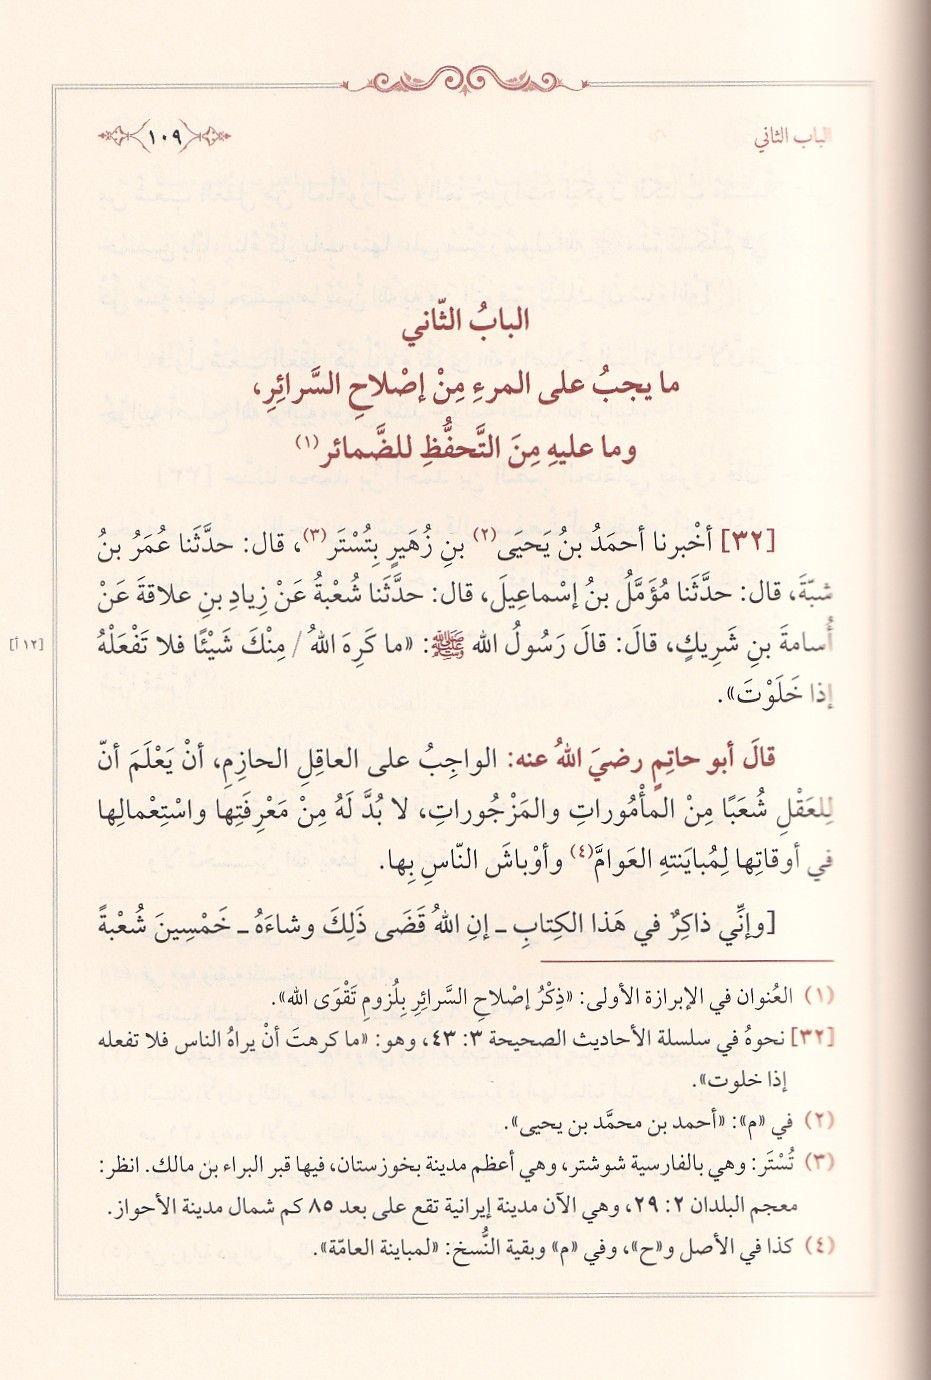 الباب الثاني
١٠٩
البابُ الثّاني
ما يجبُ على المرءِ مِنْ إصْلاحِ السَّرائِرِ،
وما عليهِ مِنَ التَّحفُّظِ للضَّمائر(١)
[٣٢] أخْبرنا أحمَدُ بنُ يَحيَى(٢) بنِ زُهَيرٍ بِتُسْتَر(٣)، قال: حدَّثَنا عُمَرُ بنُ
شبّةَ، قال: حدَّثَنا مُؤَمَّلُ بنُ إسْماعِيلَ، قال: حدَّثَنا شُعْبةُ عَنْ زِيادِ بنِ علاقةَ عَنْ
أُسامةَ بنِ شَرِيكٍ، قالَ: قالَ رَسُولُ الله ﷺ: «ما كَرِهَ اللهُ / مِنْكَ شَيْئًا فلا تَفْعَلْهُ
[١٢ أ]
إذا خَلَوْتَ».
قالَ أبو حاتِمٍ رضيَ اللهُ عنه: الواجِبُ على العاقِلِ الحازِمِ، أنْ يَعْلَمَ أنّ
لِلعَقْلِ شُعَبًا مِنْ المأْمُوراتِ والمَزْجُوراتِ، لا بُدَّ لَهُ مِنْ مَعْرِفَتِها واسْتِعْمالِها
في أوقاتِها لِمُبايَنتهِ العَوامَّ(٤) وأوْباشَ النّاسِ بِها.
[وإنِّي ذاكِرٌ في هَذا الكِتابِ ـ إنِ اللهُ قَضَى ذَلِكَ وشاءَهُ ـ خَمْسِينَ شُعْبةً
(١) العُنوان في الإبرازة الأولى: «ذِكْرُ إصْلاحِ السَّرائِرِ بِلُزومِ تَقْوَى الله».
[٣٢] نحوهُ في سلسلة الأحاديث الصحيحة ٣: ٤٣، وهو: «ما كرهتَ أنْ يراهُ الناس فلا تفعله
إذا خلوت».
(٢) في «م»: «أحمد بن محمَّد بن يحيى».
(٣) تُسْتَر: وهي بالفارسية شوشتر، وهي أعظم مدينة بخوزستان، فيها قبر البراء بن مالك. انظر:
معجم البلدان ٢: ٢٩، وهي الآن مدينة إيرانية تقع على بعد ٨٥ كم شمال مدينة الأحواز.
(٤) كذا في الأصل و«ح»، وفي «م» وبقية النُّسخ: «لمباينة العامّة».